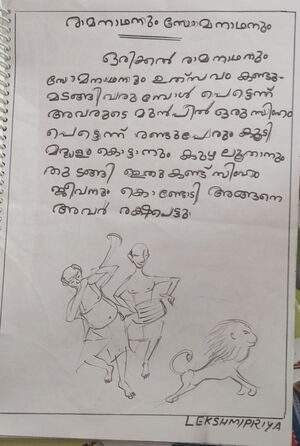 രാമനാഥനും സോമനാഥനും
ഒരിക്കൽ രാമനാഥനും
സോമനാഥനും ഉത്സവം കണ്ടു-
മടങ്ങിവരുമ്പോൾ പെട്ടെന്ന്
അവരുടെ മുൻപിൽ ഒരു സിംഹം
പെട്ടെന്ന് രണ്ടുപേരും കൂടി
മദ്ദളം കൊട്ടാനും കുഴലൂതാനും
തുടങ്ങി ഇതു കണ്ട് സിംഹം
ജീവനും കൊണ്ടോടി അങ്ങനെ
അവർ രക്ഷപെട്ടു
LEKSHMIPRIYA